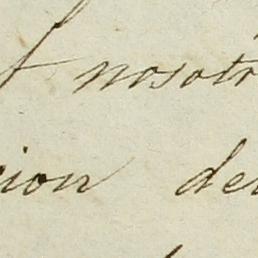 nosotr
cion de